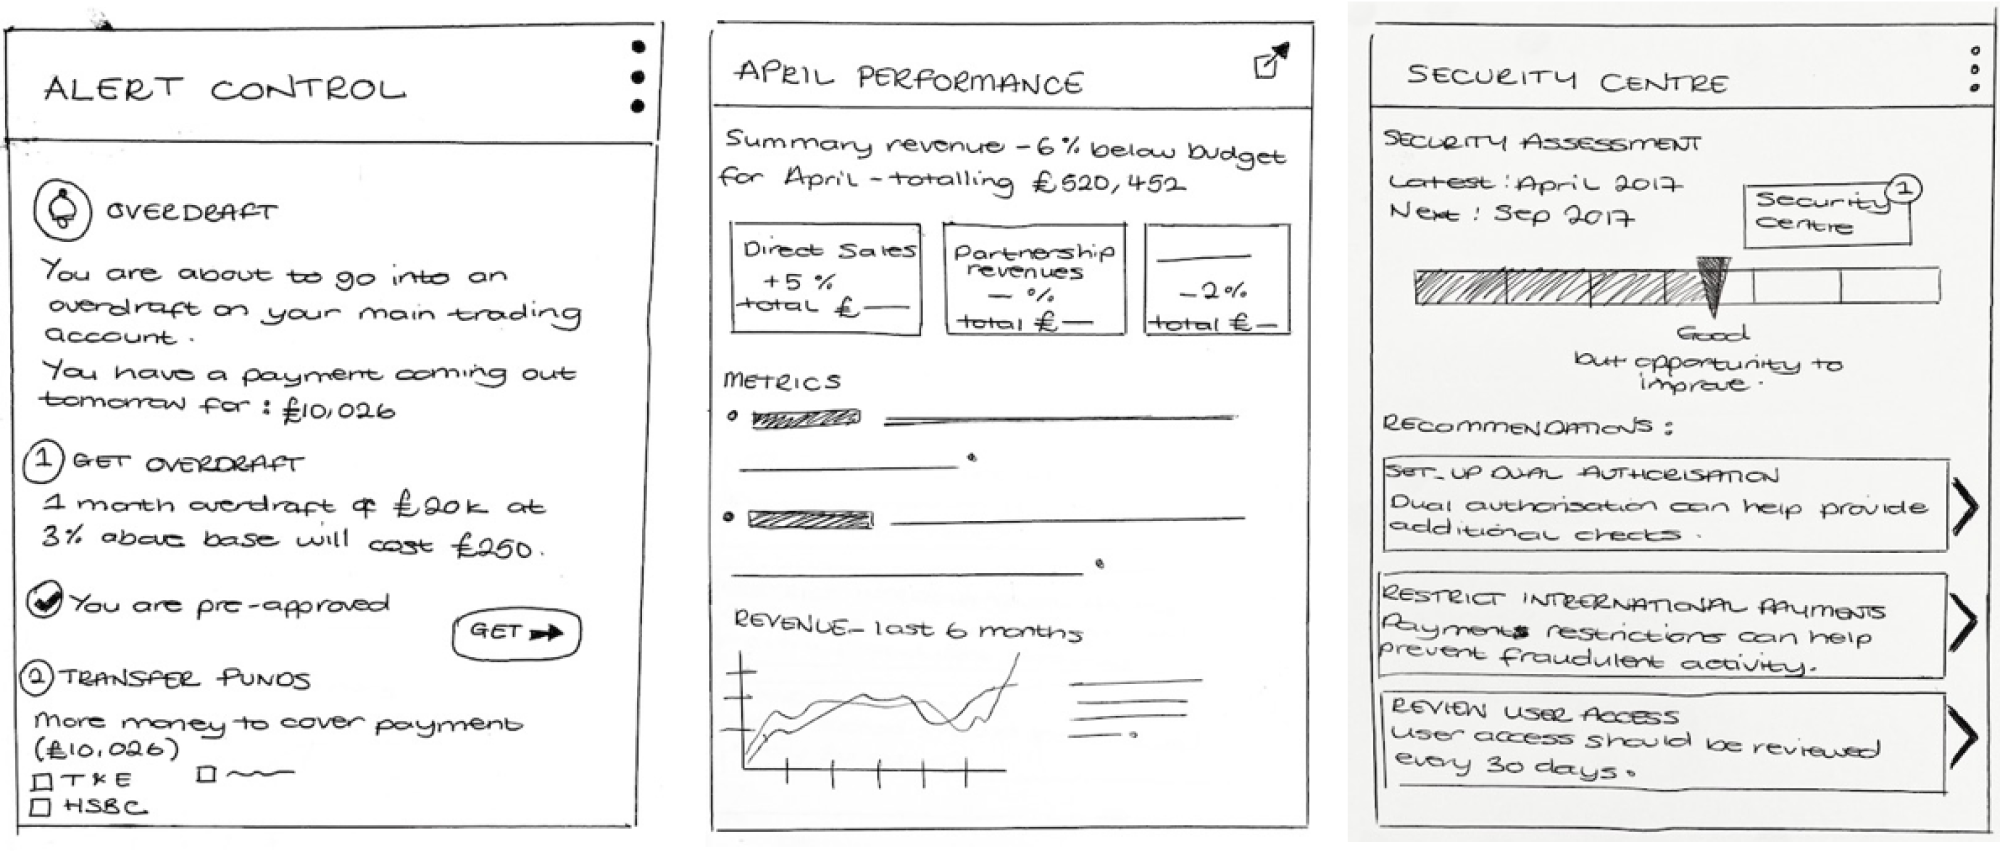 ALERT CONTROL
OVERDRAFT
You are about to go into an
overdraft on your main trading
account.
You have a payment coming out
tomorrow for : £10,026
1 GET OVERDRAFT
1 month overdraft of £20k at
3% above base will cost £250.
You are pre-approved
GET
2 TRANSFER FUNDS
More money to cover payment
(£10,026)
TKE
HSBC
APRIL PERFORMANCE
Summary revenue - 6% below budget
for April - totalling £520,452
Direct Sales
+5%
total £ —
Partnership
revenues
— %
total £ —
-2%
total £ —
METRICS
REVENUE - last 6 months
SECURITY CENTRE
SECURITY ASSESSMENT
Latest : April 2017
Next : Sep 2017
Security
centre
1
Good
but opportunity to
improve.
RECOMMENDATIONS :
SET-UP DUAL AUTHORISATION
Dual authorisation can help provide
additional checks.
RESTRICT INTERNATIONAL PAYMENTS
Payments restrictions can help
prevent fraudulent activity.
REVIEW USER ACCESS
User access should be reviewed
every 30 days.